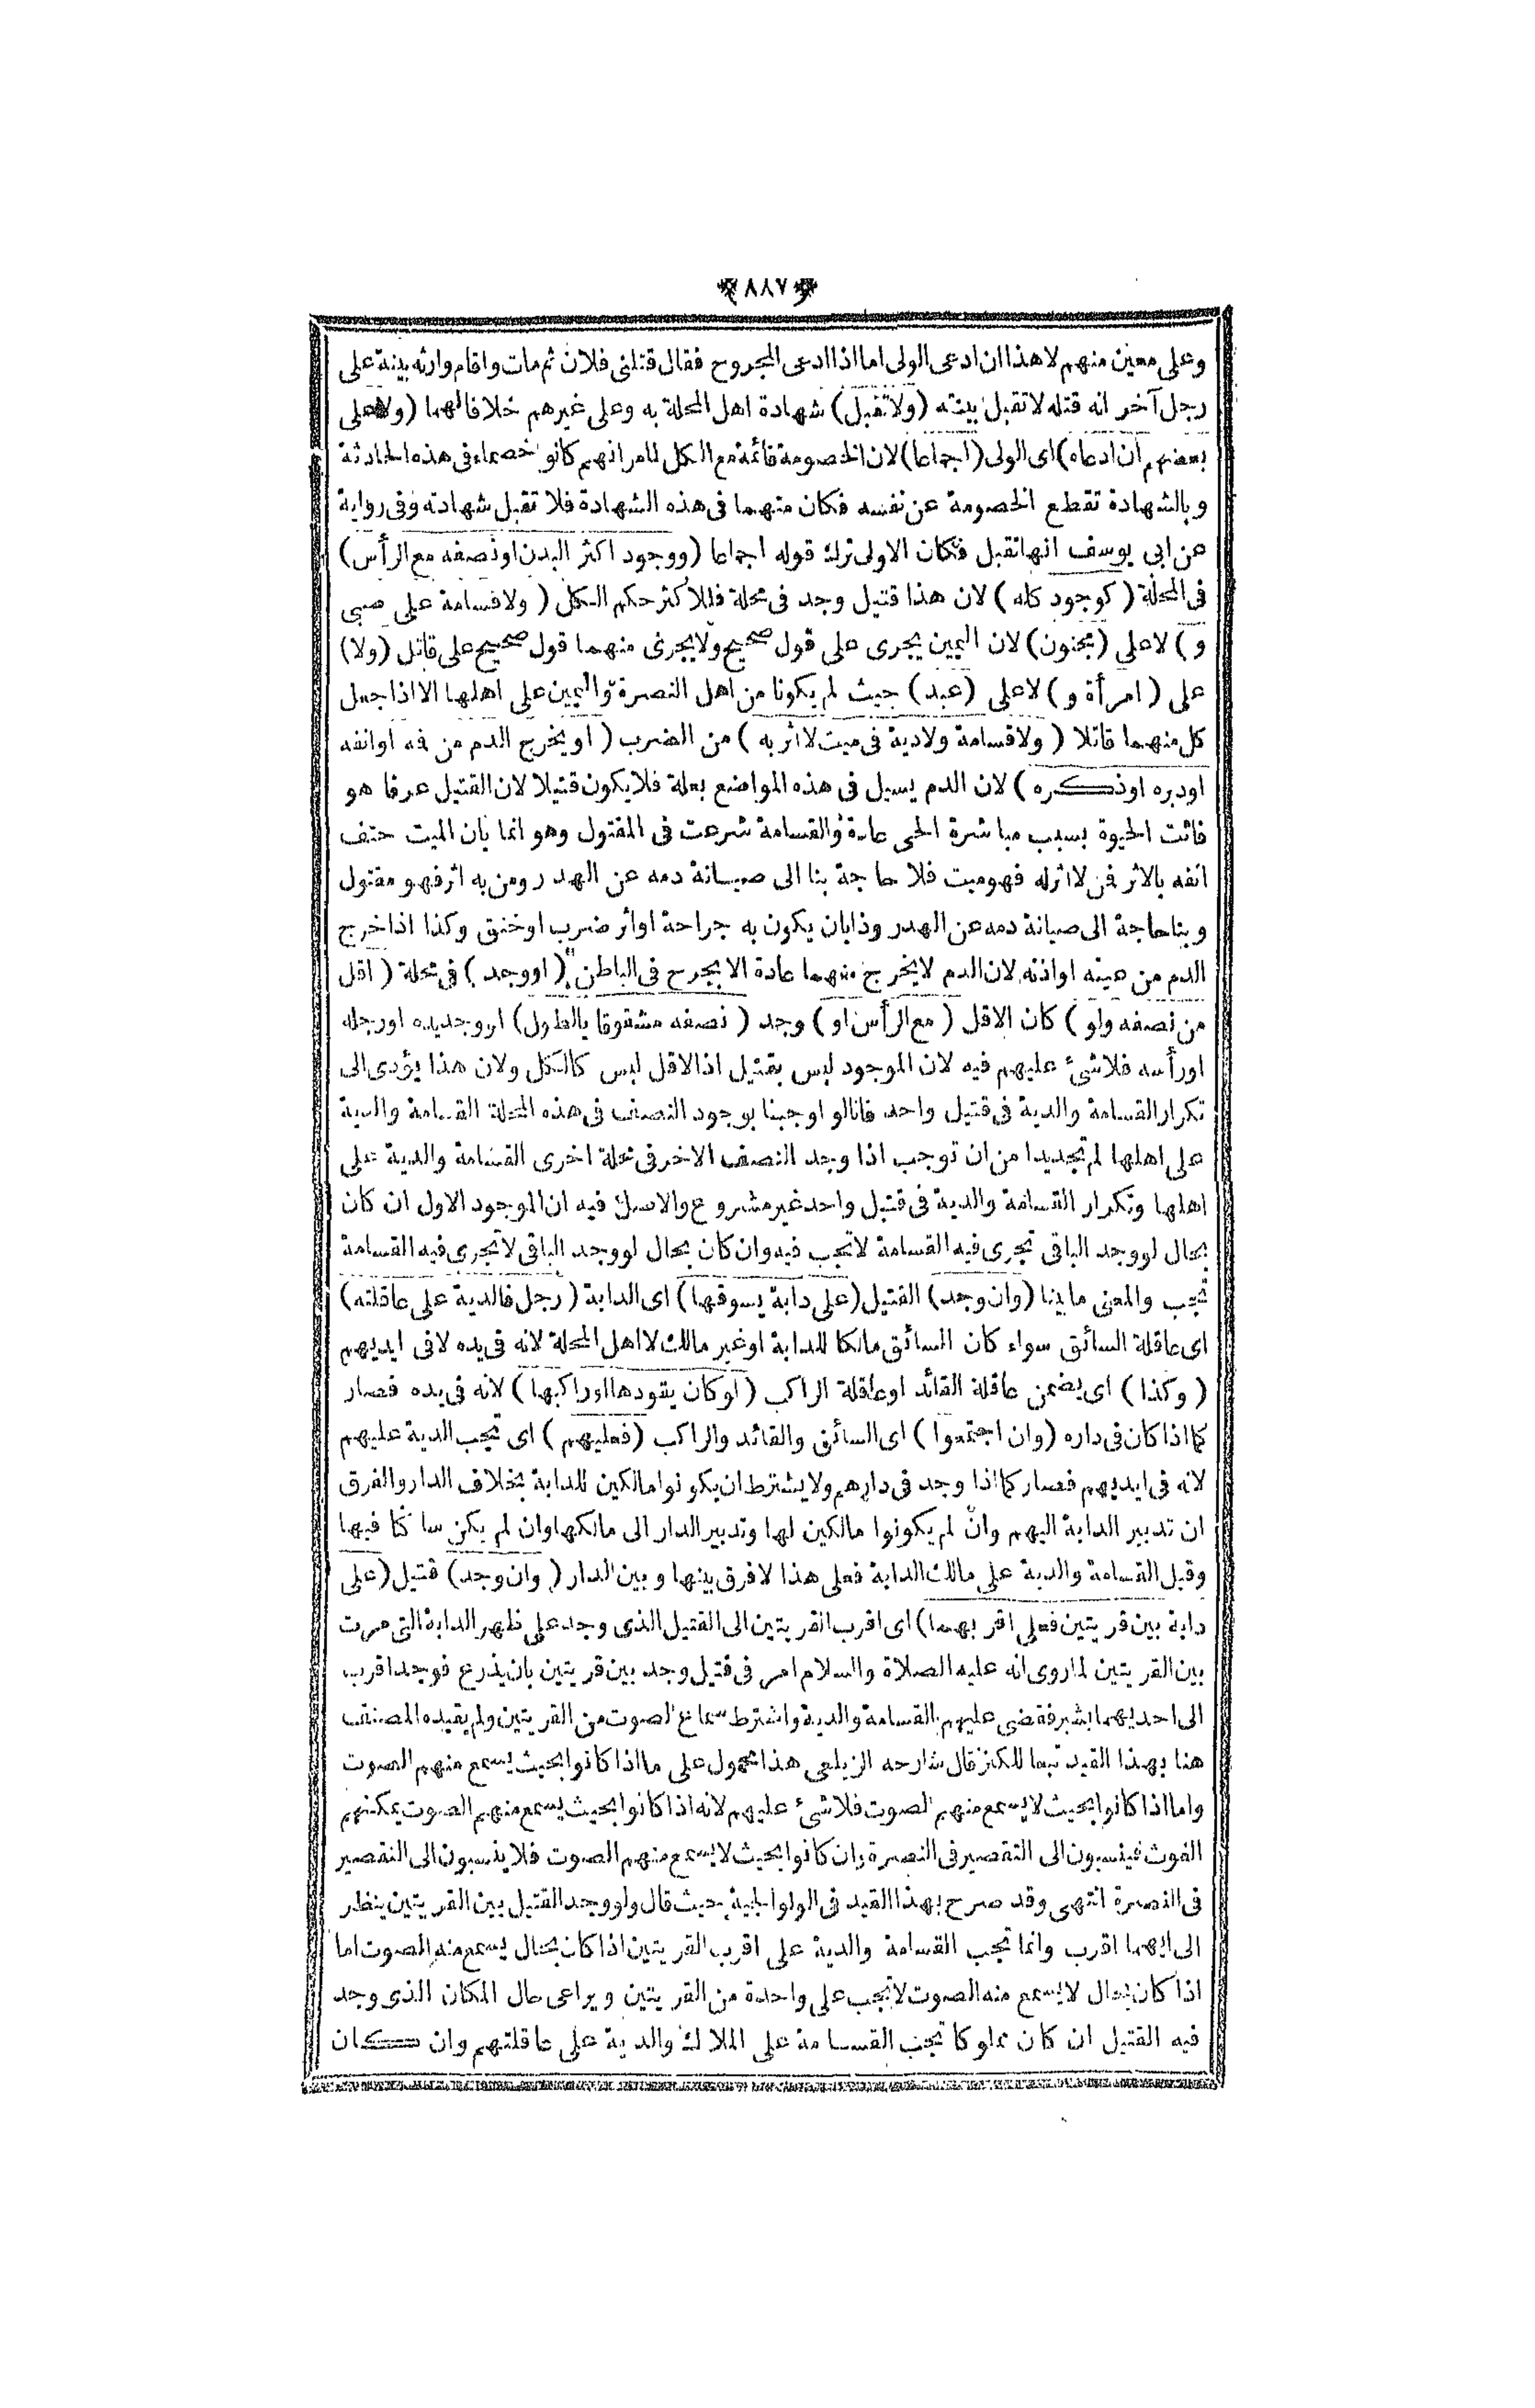 ٨٨٧
وعلى معين منهم لا هذا ان ادعى الولى اما اذا ادعى المجروح فقال قتلنى فلان ثم مات واقام وارثه بينة على
رجل آخر انه قتله لا تقبل بينته (ولا تقبل) شهادة اهل المحلة به وعلى غيرهم خلافا لهما (ولا على
بعضهم ان ادعاه) اى الولى (اجماعا) لان الخصومة قائمة مع الكل لما مر انهم كانوا خصماء فى هذه الحادثة
وبالشهادة تقطع الخصومة عن نفسه فكان متهما فى هذه الشهادة فلا تقبل شهادته وفى رواية
عن ابى يوسف انها تقبل فكان الاولى ترك قوله اجماعا (ووجود اكثر البدن او نصفه مع الرأس)
فى المحلة (كوجود كله) لان هذا قتيل وجد فى محلة فللاكثر حكم الكل (ولا قسامة على صبى
و) لا على (مجنون) لان اليمين يجرى على قول صحيح ولا يجرى منهما قول صحيح على قاتل (ولا)
على (امرأة و) لا على (عبد) حيث لم يكونا من اهل النصرة واليمين على اهلها الا اذا جعل
كل منهما قاتلا (ولا قسامة ولا دية فى ميت لا اثر به) من الضرب (او يخرج الدم من فه او انفه
او دبره او ذكره) لان الدم يسيل فى هذه المواضع بعلة فلا يكون قتيلا لان القتيل عرفا هو
فائت الحيوة بسبب مباشرة الحى عادة والقسامة شرعت فى المقتول وهو انما بان الميت حتف
انفه بالاثر فمن لا اثر له فهو ميت فلا حاجة بنا الى صيانة دمه عن الهدر ومن به اثر فهو مقتول
وبنا حاجة الى صيانة دمه عن الهدر وذا بان يكون به جراحة او اثر ضرب او خنق وكذا اذا خرج
الدم من عينه او اذنه لان الدم لا يخرج منهما عادة الا بجرح فى الباطن (او وجد) فى محلة (اقل
من نصفه ولو) كان الاقل (مع الرأس او) وجد (نصفه مشقوقا بالطول) او وجد يده او رجله
او رأسه فلا شئ عليهم فيه لان الموجود ليس بقتيل اذ الاقل ليس كالكل ولان هذا يؤدى الى
تكرار القسامة والدية فى قتيل واحد فانا لو اوجبنا بوجود النصف فى هذه المحلة القسامة والدية
على اهلها لم نجد بدا من ان توجب اذا وجد النصف الاخر فى محلة اخرى القسامة والدية على
اهلها وتكرار القسامة والدية فى قتيل واحد غير مشروع والاصل فيه ان الموجود الاول ان كان
بحال لو وجد الباقى تجرى فيه القسامة لا تجب فيه وان كان بحال لو وجد الباقى لا تجرى فيه القسامة
تجب والمعنى ما بينا (وان وجد) القتيل (على دابة يسوقها) اى الدابة (رجل فالدية على عاقلته)
اى عاقلة السائق سواء كان السائق مالكا للدابة او غير مالك لا اهل المحلة لانه فى يده لا فى ايديهم
(وكذا) اى يضمن عاقلة القائد او عاقلة الراكب (لو كان يقودها او راكبها) لانه فى يده فصار
كما اذا كان فى داره (وان اجتمعوا) اى السائق والقائد والراكب (فعليهم) اى تجب الدية عليهم
لانه فى ايديهم فصار كما اذا وجد فى دارهم ولا يشترط ان يكونوا مالكين للدابة بخلاف الدار والفرق
ان تدبير الدابة اليهم وان لم يكونوا مالكين لها وتدبير الدار الى مالكها وان لم يكن ساكنا فيها
وقيل القسامة والدية على مالك الدابة فعلى هذا لا فرق بينها وبين الدار (وان وجد) قتيل (على
دابة بين قريتين فعلى اقربهما) اى اقرب القريتين الى القتيل الذى وجد على ظهر الدابة التى مرت
بين القريتين لما روى انه عليه الصلاة والسلام امر فى قتيل وجد بين قريتين بان يذرع فوجد اقرب
الى احديهما بشبر فقضى عليهم بالقسامة والدية واشترط سماع الصوت من القريتين ولم يقيده المصنف
هنا بهذا القيد تبعا للكنز قال شارحه الزيلعى هذا محمول على ما اذا كانوا بحيث يسمع منهم الصوت
واما اذا كانوا بحيث لا يسمع منهم الصوت فلا شئ عليهم لانه اذا كانوا بحيث يسمع منهم الصوت يمكنهم
الغوث فينسبون الى التقصير فى النصرة وان كانوا بحيث لا يسمع منهم الصوت فلا ينسبون الى التقصير
فى النصرة انتهى وقد صرح بهذا القيد فى الولوالجية حيث قال ولو وجد القتيل بين القريتين ينظر
الى ايهما اقرب وانما تجب القسامة والدية على اقرب القريتين اذا كان بحال يسمع منه الصوت اما
اذا كان بحال لا يسمع منه الصوت لا تجب على واحدة من القريتين ويراعى حال المكان الذى وجد
فيه القتيل ان كان مملوكا تجب القسامة على الملاك والدية على عاقلتهم وان كان